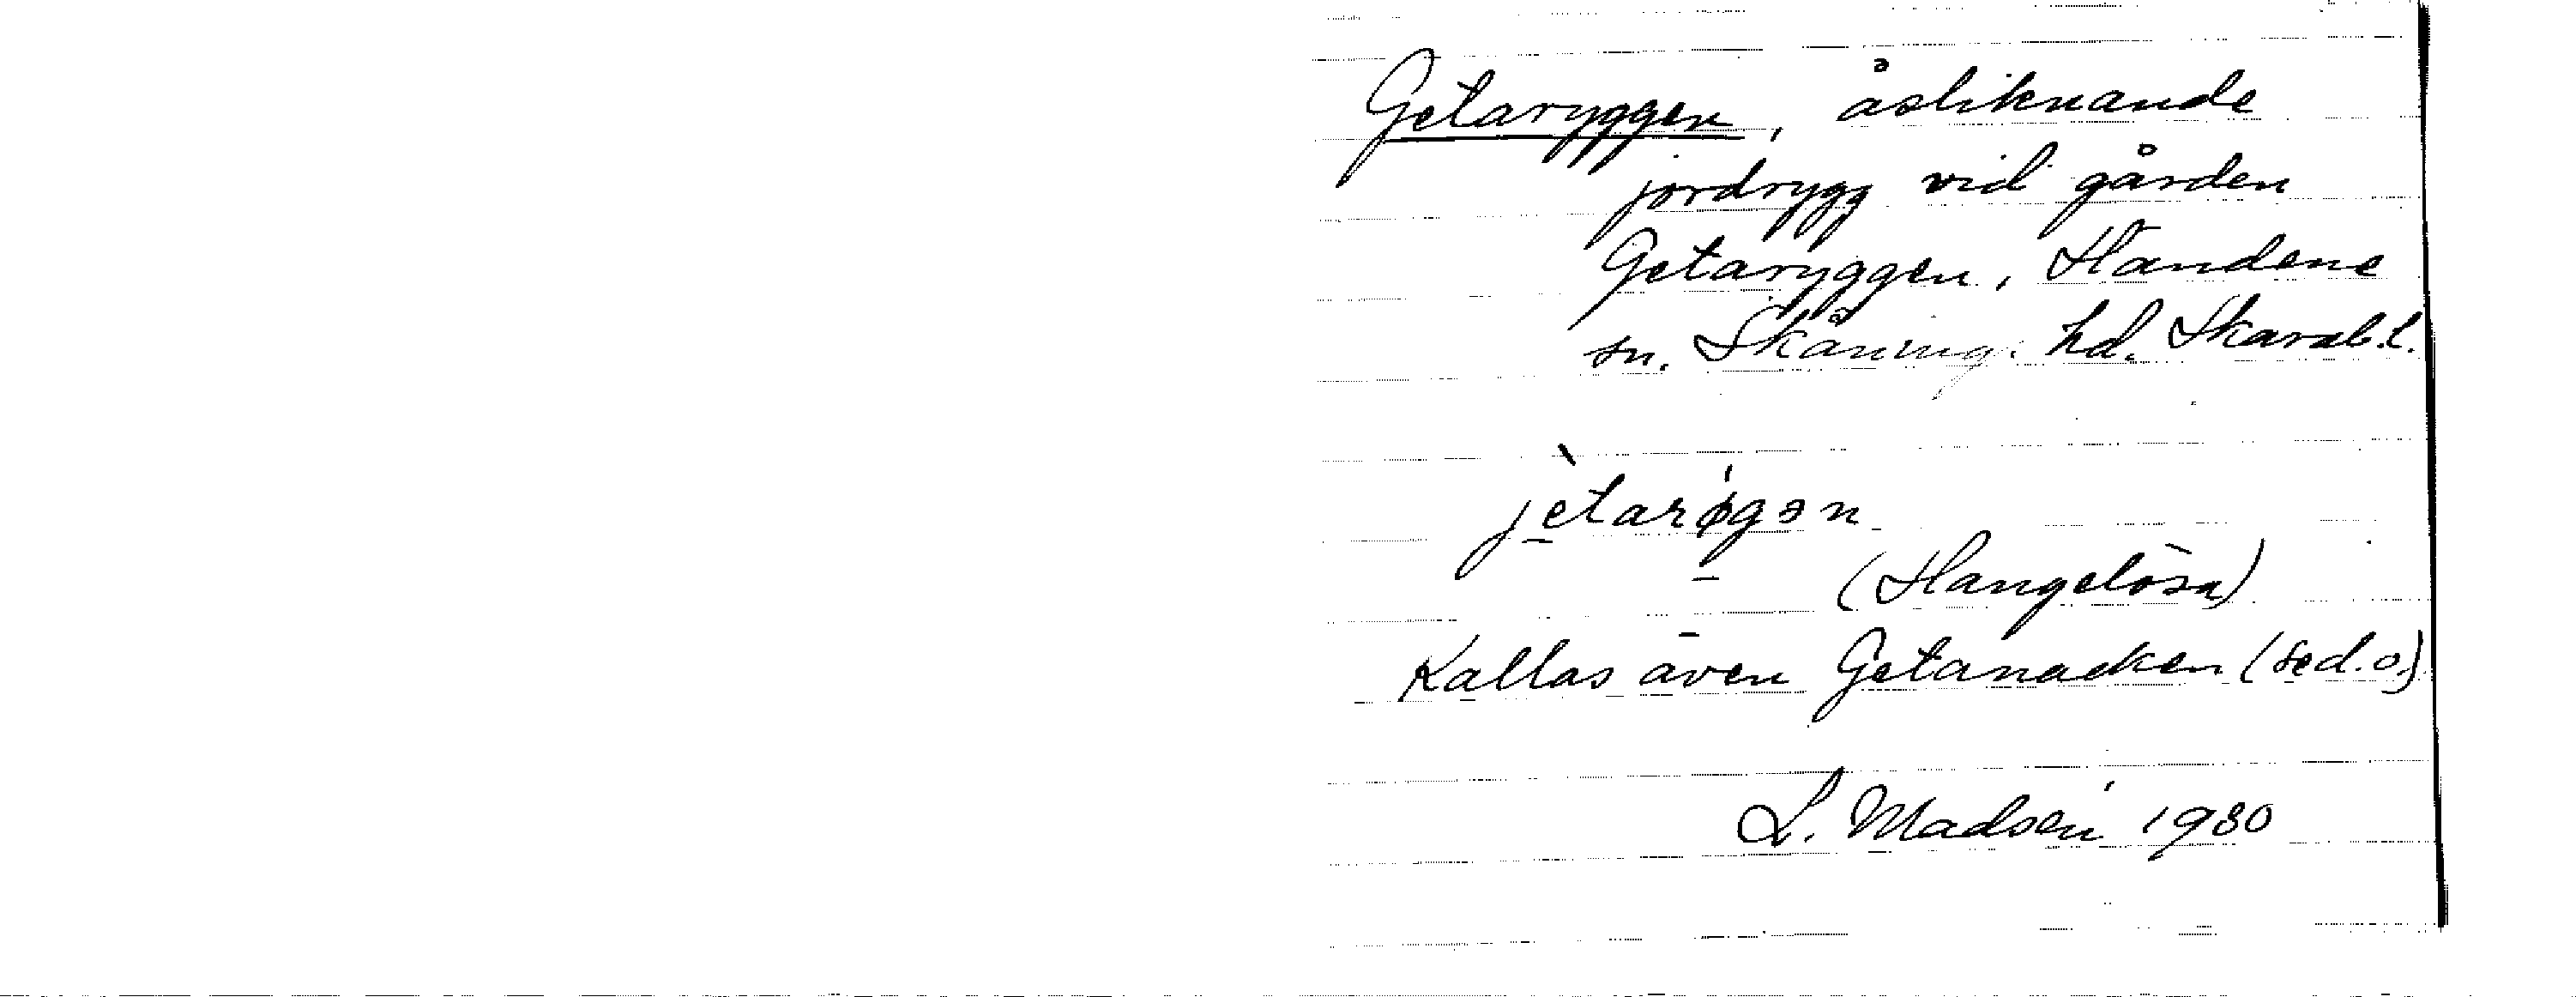 Getaryggen, åsliknande
jordrygg vid gården
Getaryggen, Händene
sn. Skånings hd. Skarab.l.
jètarǿgən
(Hangelösa)
Kallas även Getanacken (se d.o.)
L. Madsén 1930